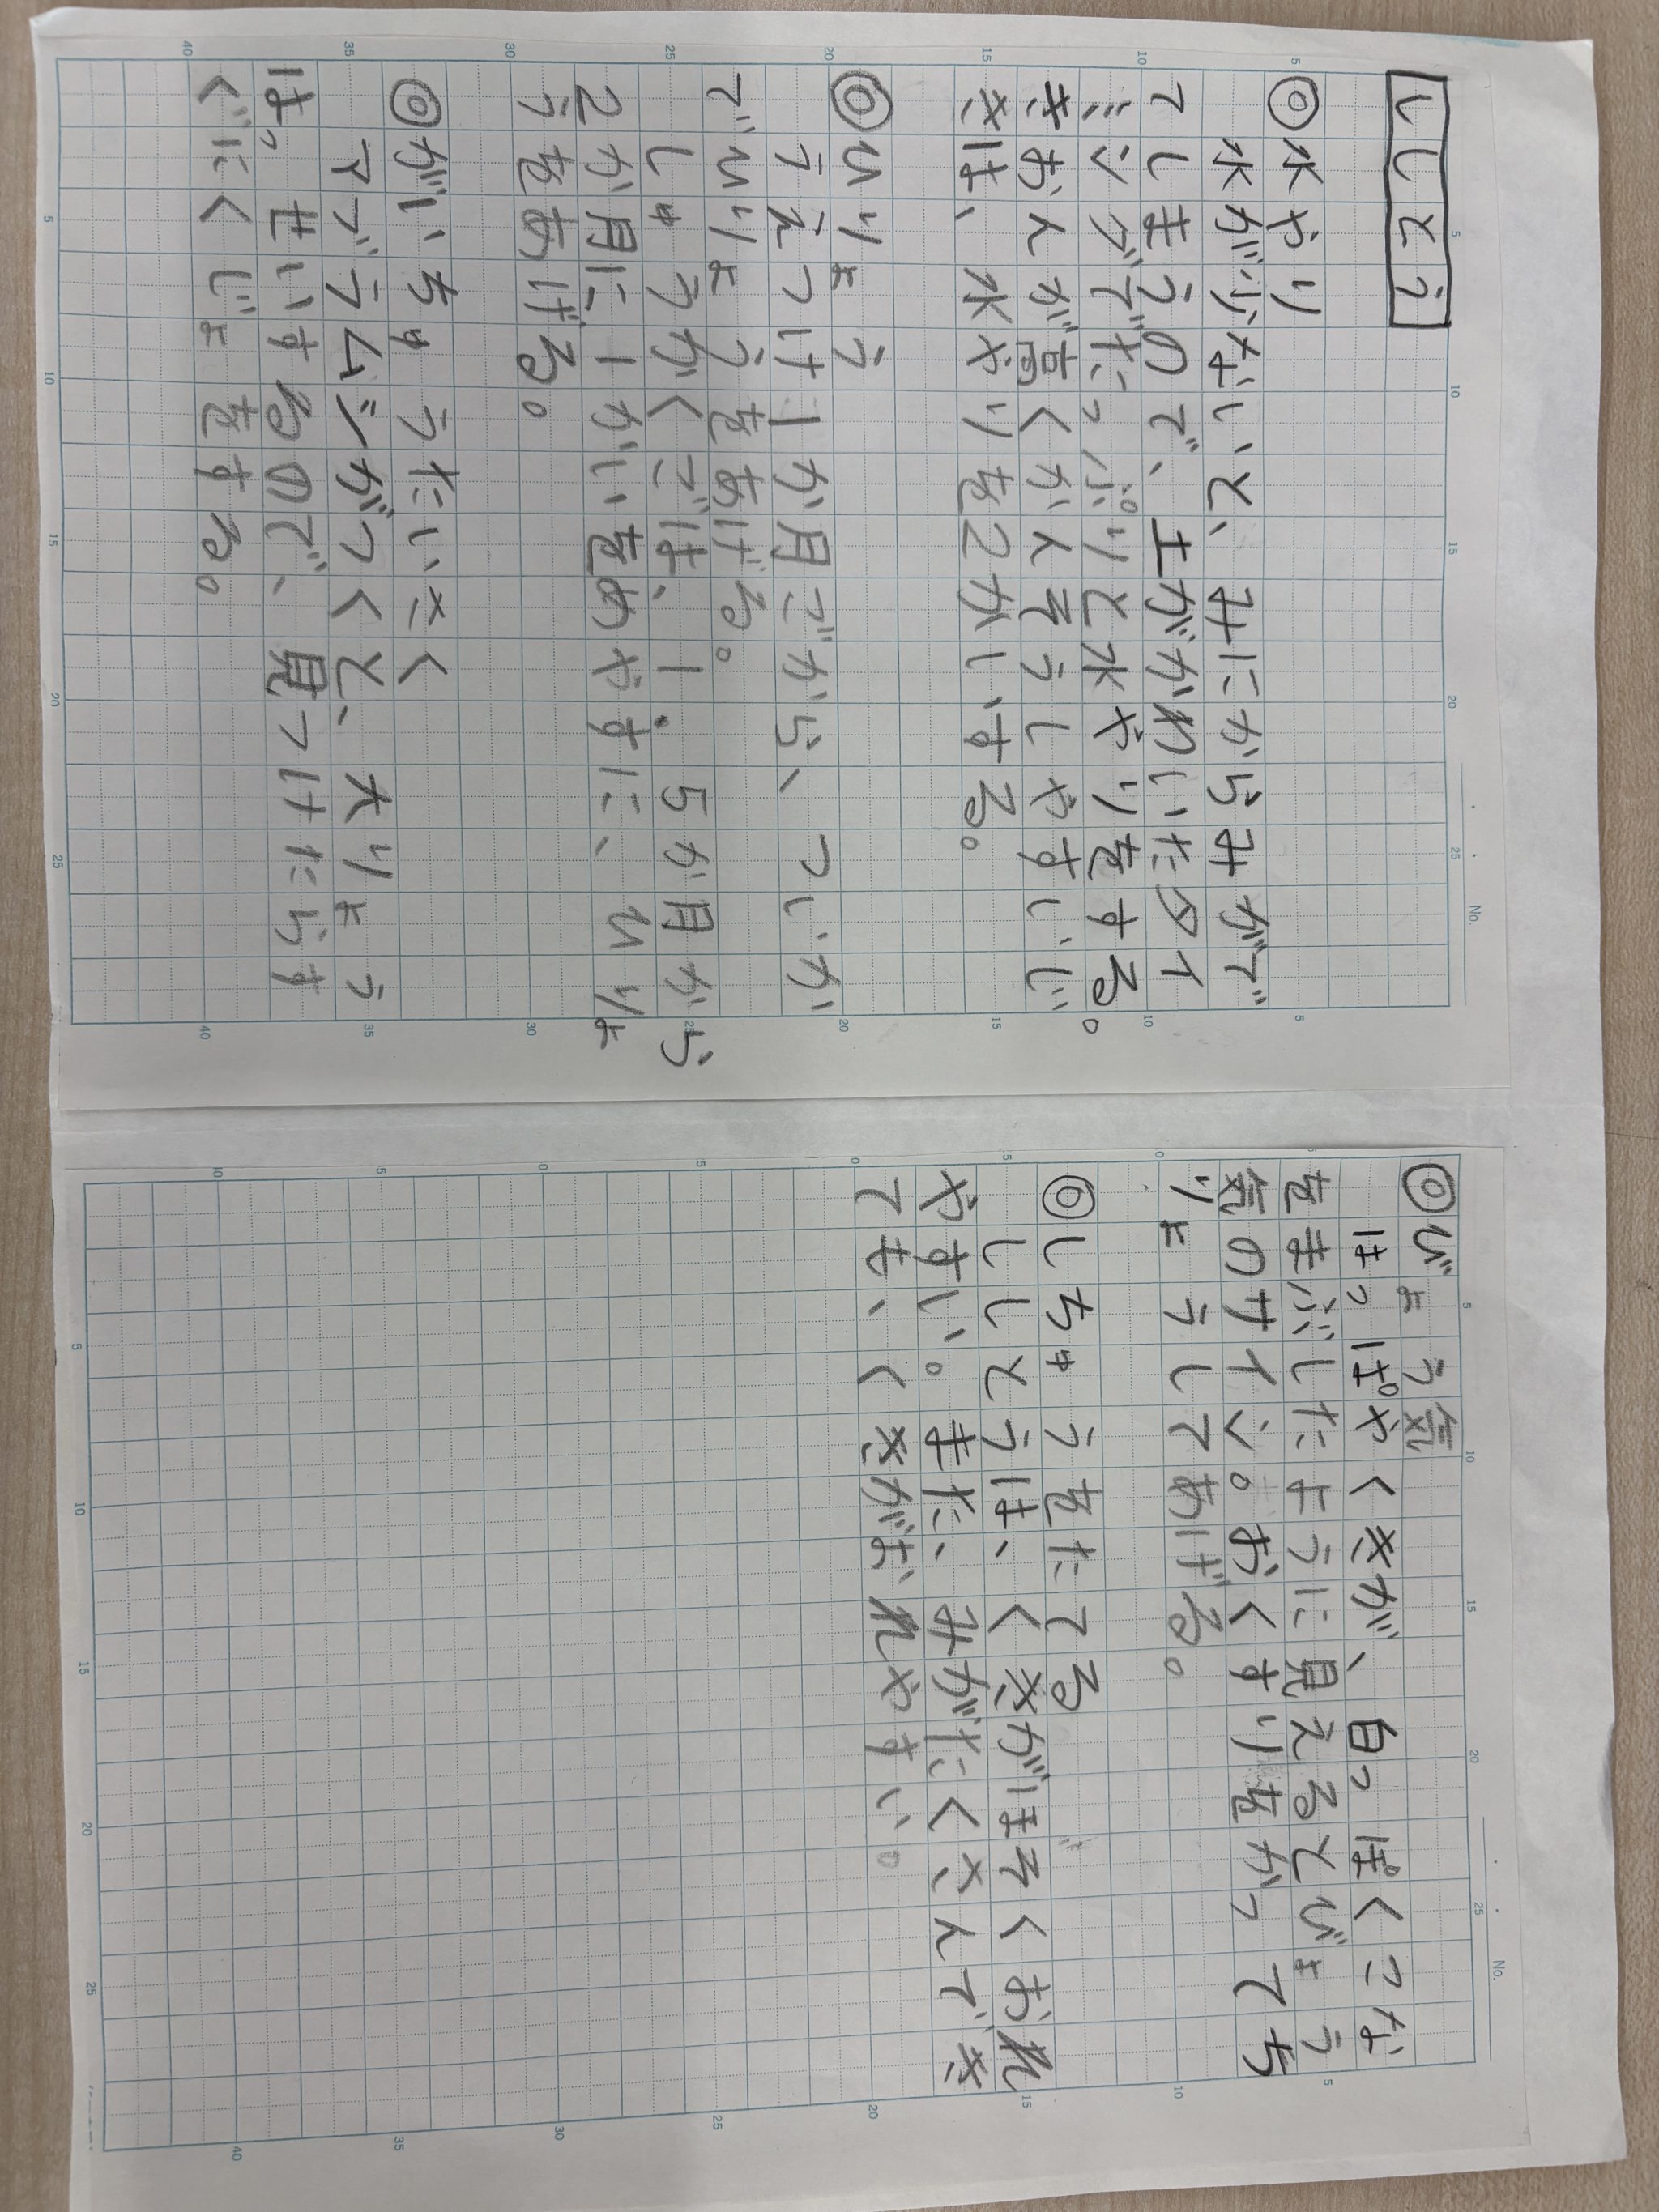 ししとう
◎水やり
水が少ないと、みにからみがで
てしまうので、土がかわいたタイ
ミングでたっぷりと水やりをする。
きおんが高くかんそうしやすいじ
きは、水やりを2かいする。
◎ひりょう
うえつけ1か月ごから、ついか
でひりょうをあげる。
しゅうかくごは、1.5か月から
2か月に1かいをめやすに、ひりょ
うをあげる。
◎がいちゅうたいさく
アブラムシがつくと、大りょう
はっせいするので、見つけたらす
ぐにくじょをする。
◎びょう気
はっぱやくきが、白っぽくこな
をまぶしたように見えるとびょう
気のサイン。おくすりをかってち
りょうしてあげる。
◎しちゅうをたてる
ししとうは、くきがほそくおれ
やすい。まだ、みがたくさんでき
ても、くきがおれやすい。
No.
No.
5
10
15
20
25
30
35
40